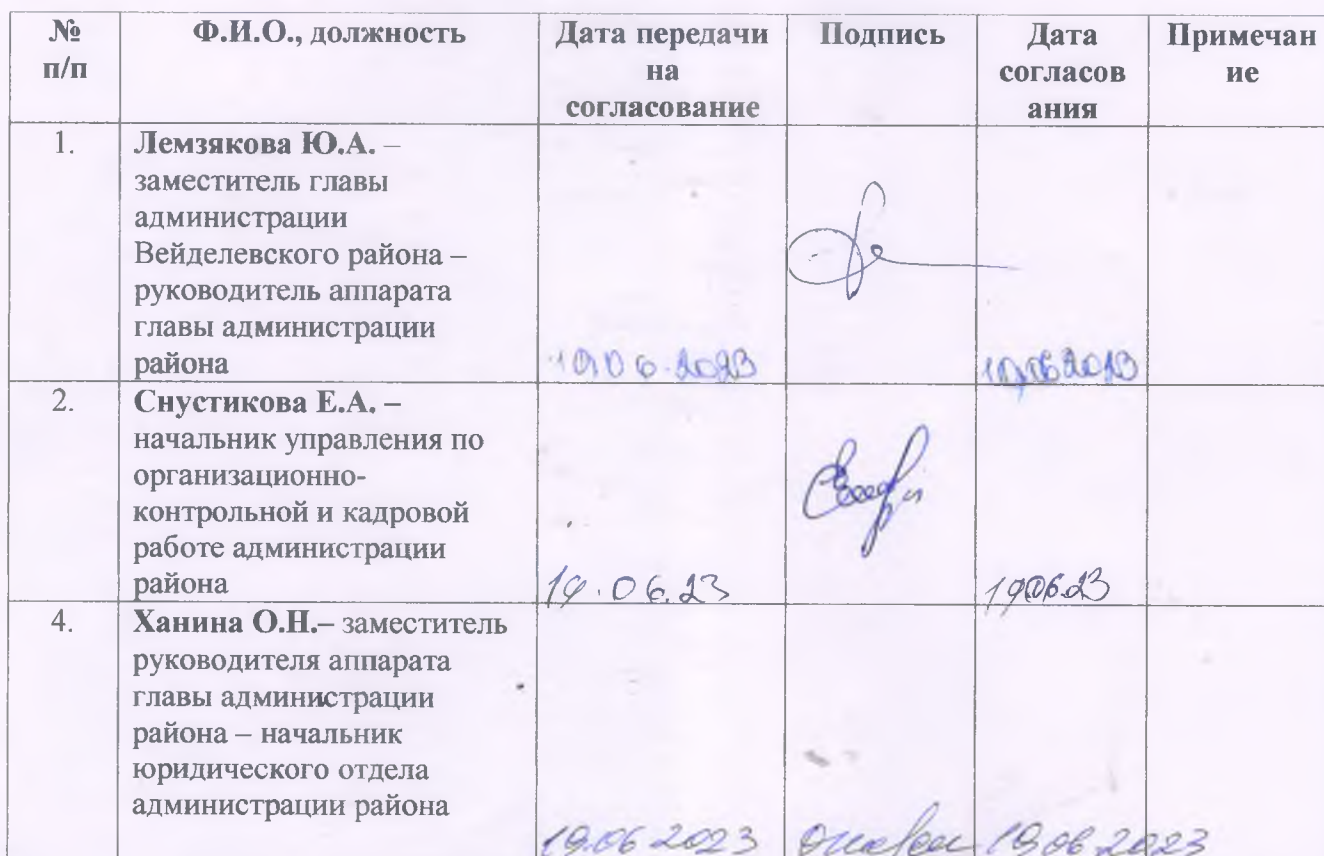 № Ф.И.О., должность Дата передачи Подпись Дата Примечан
п/п на согласов ие
согласование ания
1. Лемзякова Ю.А. –
заместитель главы
администрации
Вейделевского района –
руководитель аппарата
главы администрации
района 19.06.2023 19.06.2023
2. Снустикова Е.А. –
начальник управления по
организационно-
контрольной и кадровой
работе администрации
района 19.06.23 19.06.23
4. Ханина О.Н.– заместитель
руководителя аппарата
главы администрации
района – начальник
юридического отдела
администрации района
19.06.2023 19.06.2023